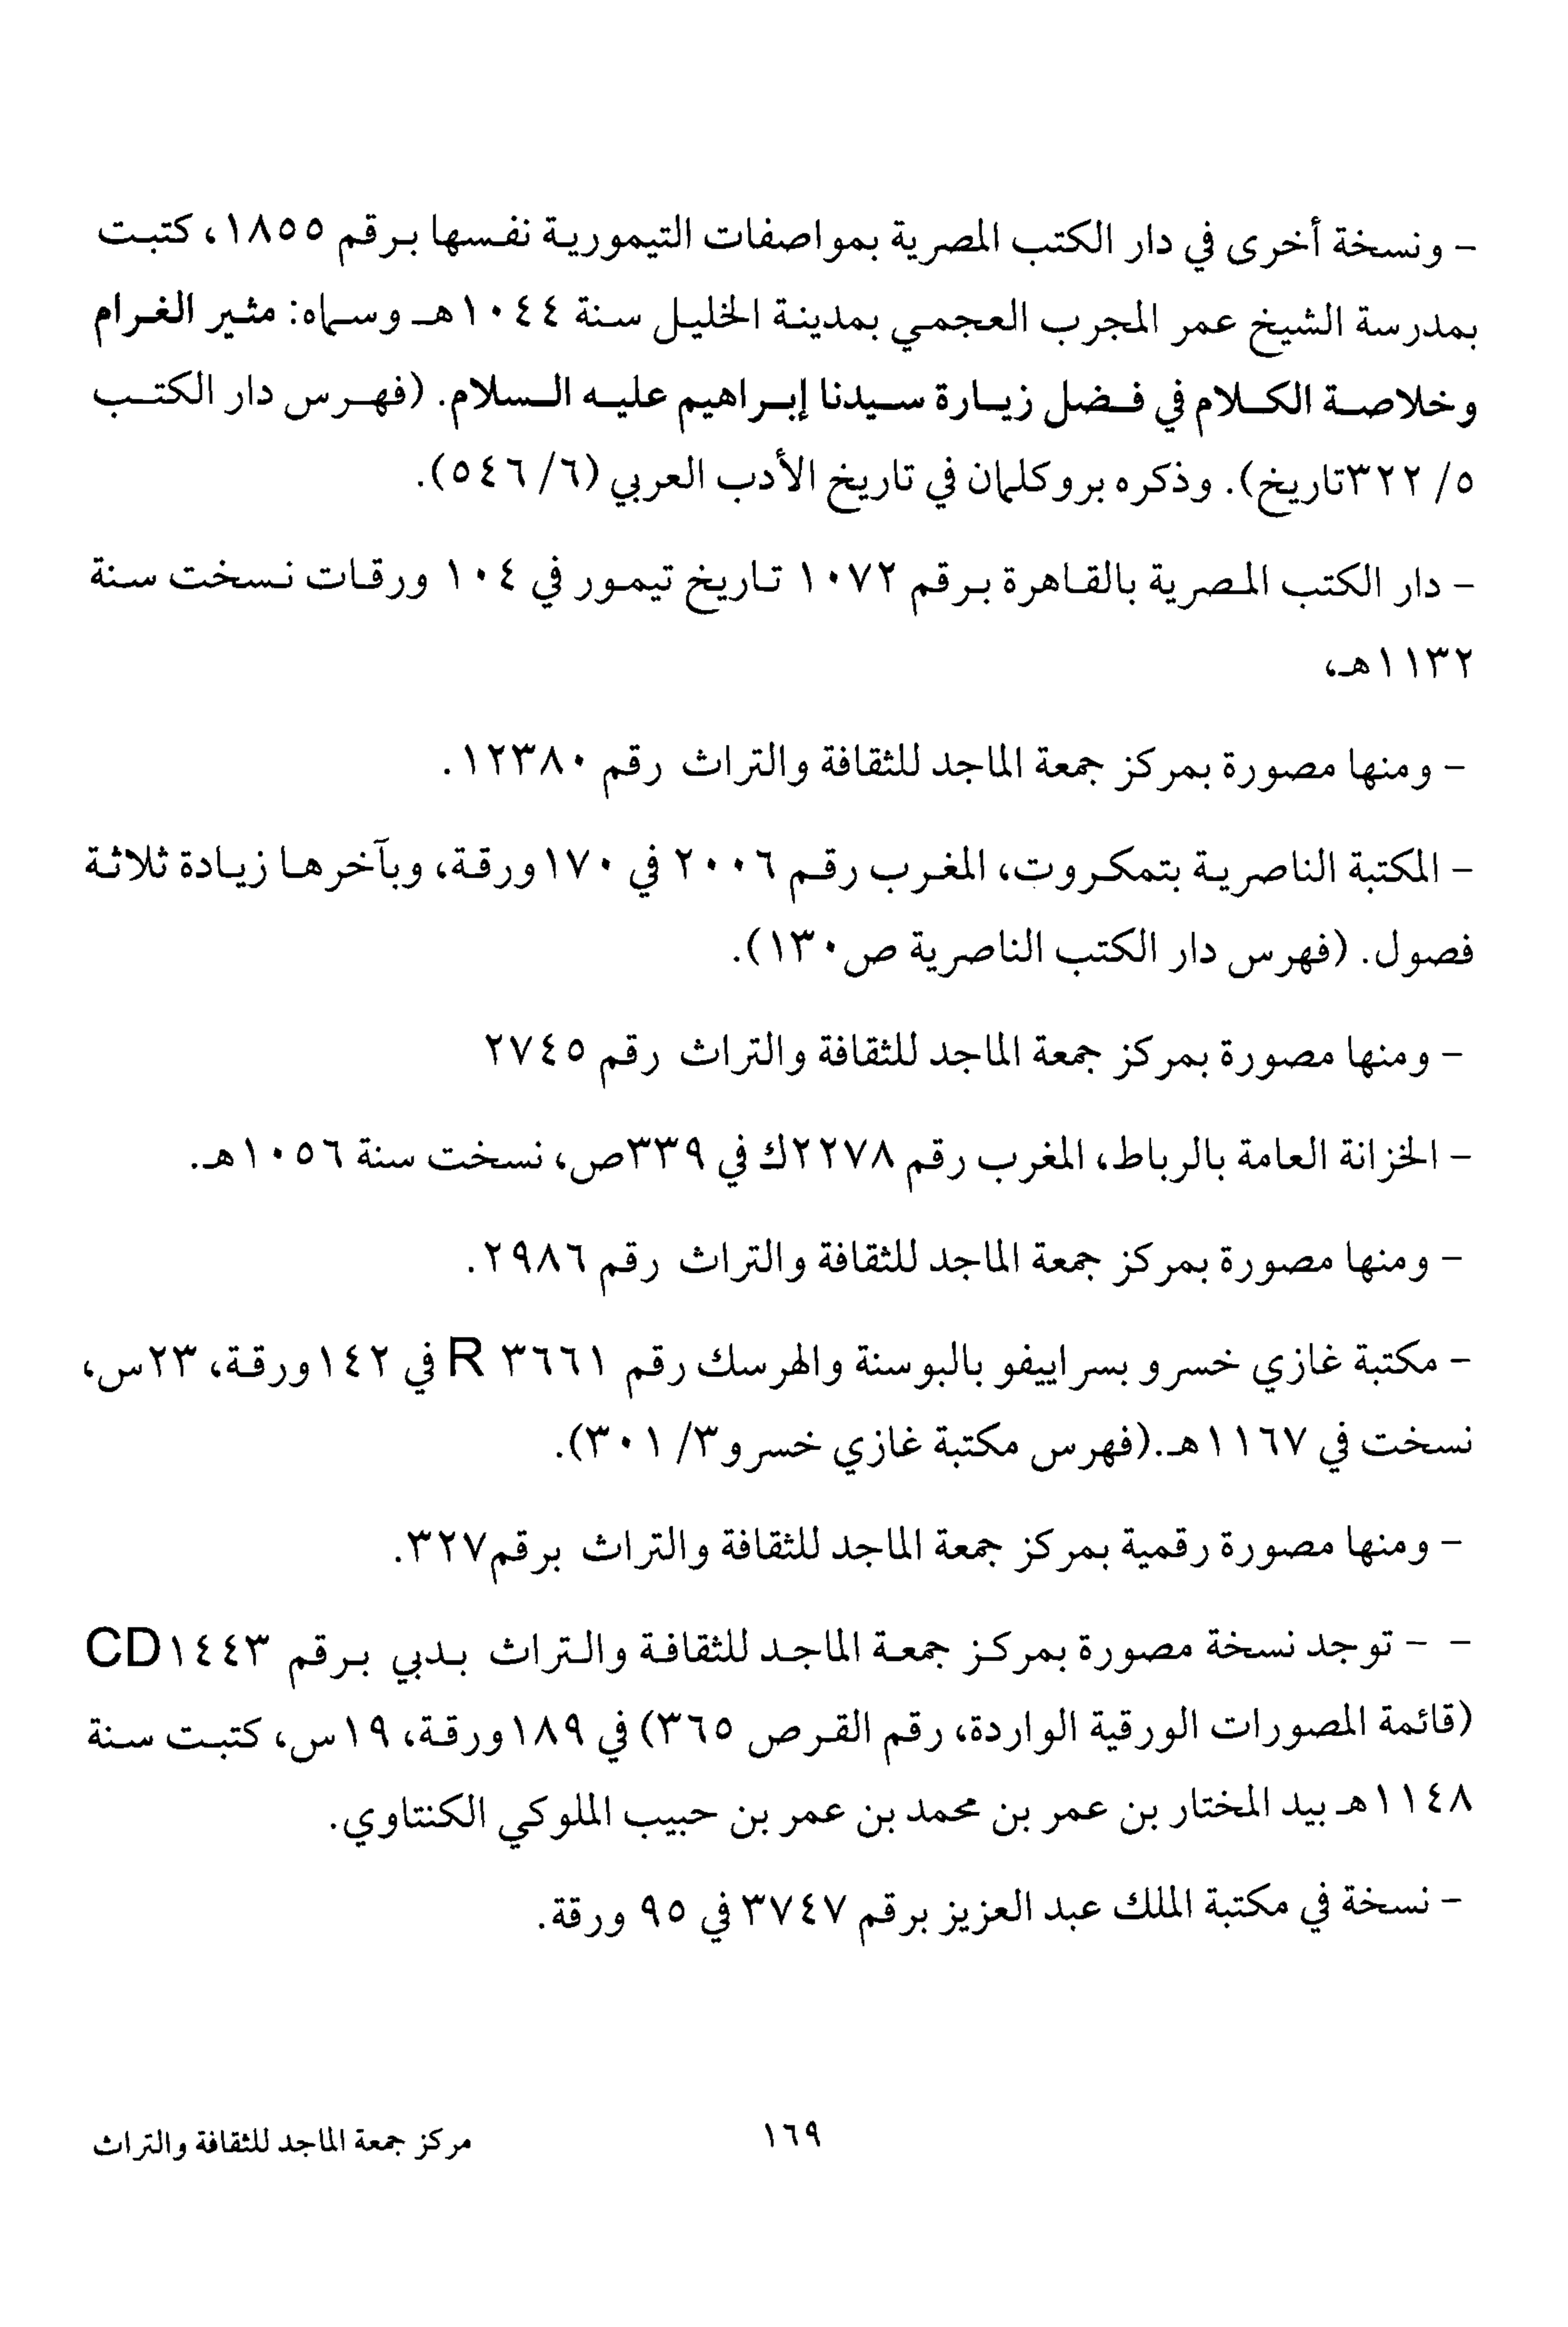 - ونسخة أخرى في دار الكتب المصرية بمواصفات التيمورية نفسها برقم ١٨٥٥، كتبت
بمدرسة الشيخ عمر المجرب العجمي بمدينة الخليل سنة ١٠٤٤هـ وسماه: مثير الغرام
وخلاصة الكلام في فضل زيارة سيدنا إبراهيم عليه السلام. (فهرس دار الكتب
٥/ ٣٢٢تاريخ). وذكره بروكلمان في تاريخ الأدب العربي (٦/ ٥٤٦).
- دار الكتب المصرية بالقاهرة برقم ١٠٧٢ تاريخ تيمور في ١٠٤ ورقات نسخت سنة
١١٣٢هـ،
- ومنها مصورة بمركز جمعة الماجد للثقافة والتراث رقم ١٢٣٨٠.
- المكتبة الناصرية بتمكروت، المغرب رقم ٢٠٠٦ في ١٧٠ورقة، وبآخرها زيادة ثلاثة
فصول. (فهرس دار الكتب الناصرية ص١٣٠).
- ومنها مصورة بمركز جمعة الماجد للثقافة والتراث رقم ٢٧٤٥
- الخزانة العامة بالرباط، المغرب رقم ٢٢٧٨ك في ٣٣٩ص، نسخت سنة ١٠٥٦هـ.
- ومنها مصورة بمركز جمعة الماجد للثقافة والتراث رقم ٢٩٨٦.
- مكتبة غازي خسرو بسراييفو بالبوسنة والهرسك رقم ٣٦٦١ R في ١٤٢ورقة، ٢٣س،
نسخت في ١١٦٧هـ.(فهرس مكتبة غازي خسرو٣/ ٣٠١).
- ومنها مصورة رقمية بمركز جمعة الماجد للثقافة والتراث برقم٣٢٧.
- - توجد نسخة مصورة بمركز جمعة الماجد للثقافة والتراث بدبي برقم CD١٤٤٣
(قائمة المصورات الورقية الواردة، رقم القرص ٣٦٥) في ١٨٩ورقة، ١٩س، كتبت سنة
١١٤٨هـ بيد المختار بن عمر بن محمد بن عمر بن حبيب الملوكي الكنتاوي.
- نسخة في مكتبة الملك عبد العزيز برقم ٣٧٤٧ في ٩٥ ورقة.
١٦٩
مركز جمعة الماجد للثقافة والتراث